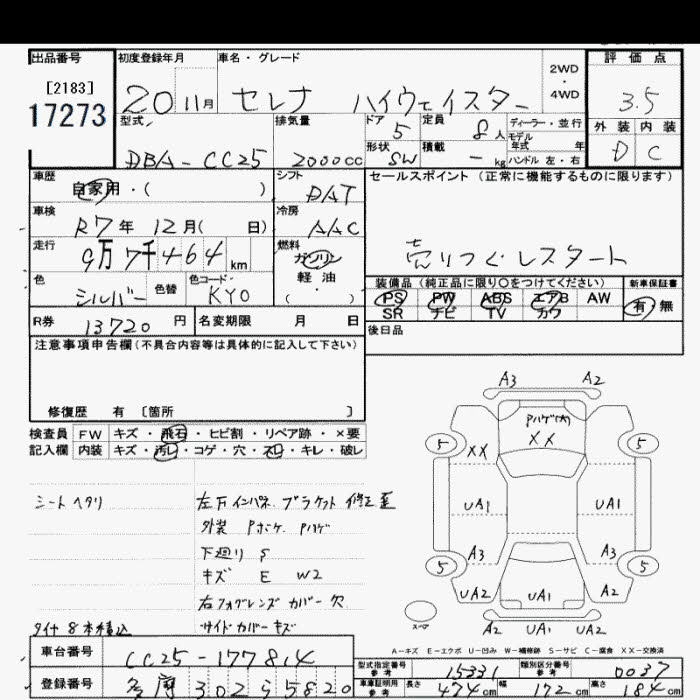 出品番号
[2183]
17273
初度登録年月
20 11月
車名・グレード
セレナ ハイウェイスター
2WD
・
4WD
評価点
3.5
外装 内装
D C
型式
DBA-CC25
排気量
2000cc
ドア
5
定員
8人
ディーラー・並行
モデル
年式 年
形状
SW
積載
- kg
ハンドル 左・右
車歴
自家用・( )
シフト
DAT
セールスポイント (正常に機能するものに限ります)
売りつくしスタート
車検
R7年 12月( 日)
冷房
AAC
走行
9万7千464km
燃料
ガソリン
軽油
( ・ )
色
シルバー
色替
色コード
KY0
装備品 (純正品に限り○をつけてください)
PS PW ABS エアB AW
SR ナビ TV カワ
新車保証書
有 無
R券
13720 円
名変期限 月 日
後日品
注意事項申告欄(不具合内容等は具体的に記入して下さい)
修復歴 有 [箇所 ]
検査員
記入欄
FW キズ・飛石・ヒビ割・リペア跡・×要
内装 キズ・汚レ・コゲ・穴・スレ・キレ・破レ
シートヘタリ
左下インパネ ブラケット 修正歪
外装 Pボケ Pハゲ
下廻り S
キズ E W2
右フォグレンズカバー欠
サイドカバーキズ
タイヤ8本積込
A3 A2
Pハゲ(大)
XX XX
5 5
UA1 UA1
A3 A3
5 5
UA2 UA1 A2
A2 UA1 UA2
スペア
A-キズ E-エクボ U-凹み W-補修跡 S-サビ C-腐食 XX-交換済
車台番号
CC25-177814
登録番号
多摩 302 ら 5820
型式指定番号
参考
15331
類別区分番号
参考
0037
車庫証明用
参考
長さ 474cm 幅 172cm 高さ 184cm